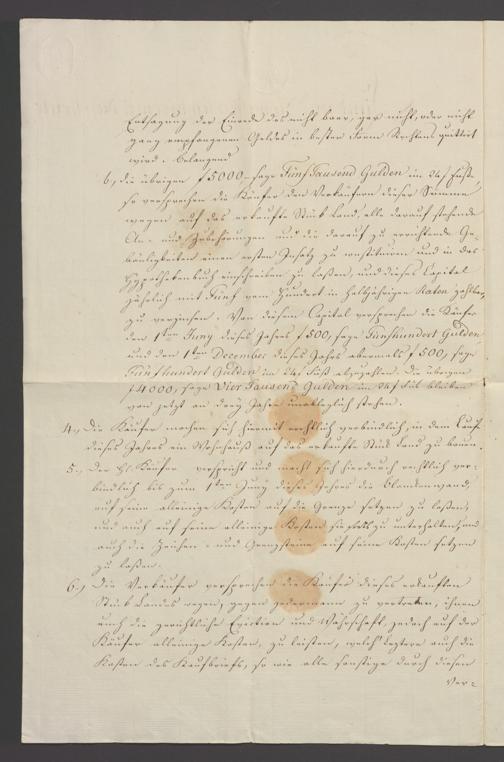 Entsagung der Einrede des nicht baar, gar nicht, oder nicht
ganz empfangenen Geldes in bester Form Rechtens quittirt
wird. Belangend
b, die übrigen f 5000 – sage Fünf Tausend Gulden im 24 f Fuß,
so versprechen die Käufer den Verkäufern dieser Summe
wegen auf das erkaufte Stück Land, alle darauf stehende
An- und Zubehörungen und die darauf zu errichtende Ge-
bäulichkeiten einen ersten Insatz zu constituiren und in das
Hypothekenbuch einschreiben zu laßen, und dieses Capital
jährlich mit Fünf vom Hundert in halbjährigen Raten zahlbar,
zu verzinsen. Von diesem Capital versprechen die Käufer
den 1ten Juny dieses Jahrs f 500, sage Fünfhundert Gulden
und den 1ten December dieses Jahrs abermals f 500, sage
Fünfhundert Gulden im 24 f Fuß abzuzahlen. Die übrigen
f 4000, sage Vier Tausend Gulden im 24 f Fuß bleiben
von jetzt an drey Jahre unableglich stehen.
4., Die Käufer machen sich hiermit rechtlich verbindlich, in dem Lauf
dieses Jahres ein Wohnhauß auf das erkaufte Stück Land zu bauen.
5., Der Hr. Käufer verspricht und macht sich hierdurch rechtlich ver-
bindlich bis zum 1ten Juny dieses Jahres die Blankenwand,
auf seine alleinige Kosten auf die Grenze setzen zu laßen,
und auch auf seine alleinige Kosten sie stets zu unterhalten, und
auch die Zeichen- und Grenzsteine auf seine Kosten setzen
zu laßen.
6., Die Verkäufer versprechen die Käufer dieses erkauften
Stück Landes wegen, gegen jedermann zu vertreten, ihnen
auch die gerichtliche Eviction und Währschaft, jedoch auf der
Käufer alleinige Kosten, zu leisten, welch letztere auch die
Kosten des Kaufbriefs, so wie alle sonstige durch diesen
Ver-